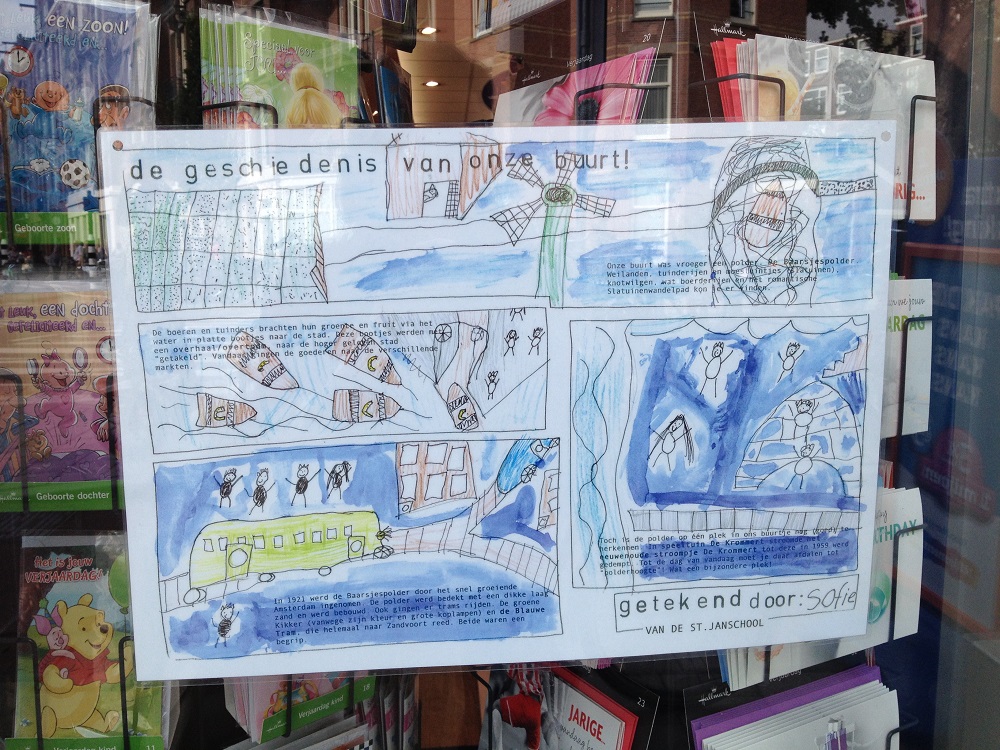 EEN ZOON!
Speciaal voor
Hallmark
20
Verjaardag
Hallmark
de geschiedenis van onze buurt!
Geboorte zoon
Onze buurt was vroeger een polder. De Baarsjespolder.
Weilanden, tuinderijen en moestuintjes (Slatuinen),
knotwilgen, wat boerderijen en het romantische
Slatuinenwandelpad kon je er vinden.
EEN DOCHTER
De boeren en tuinders brachten hun groente en fruit via het
water in platte bootjes naar de stad. Deze bootjes werden met
een overhaal/overtoom, naar de hoger gelegen stad
"getakeld". Vandaar gingen de goederen naar de verschillende
markten.
Hallmark
Geboorte dochter
Het is jouw
VERJAARDAG!
In 1921 werd de Baarsjespolder door het snel groeiende
Amsterdam ingenomen. De polder werd bedekt met een dikke laag
zand en werd bebouwd. Ook gingen er trams rijden. De groene
Kikker (vanwege zijn kleur en grote koplampen) en de Blauwe
Tram, die helemaal naar Zandvoort reed. Beide waren een
begrip.
Toch is de polder op één plek in ons buurtje nog (goed) te
herkennen! In speeltuin De Krommert stroomde het
eeuwenoude stroompje De Krommert tot deze in 1959 werd
gedempt. Tot de dag van vandaag moet je daar afdalen tot
"polderhoogte"! Wat een bijzondere plek!
getekend door: Sofie
VAN DE ST.JANSCHOOL
Verjaardag kind
11
Verjaardag kind
18
JARIGE
23
Hallmark
Verjaardag